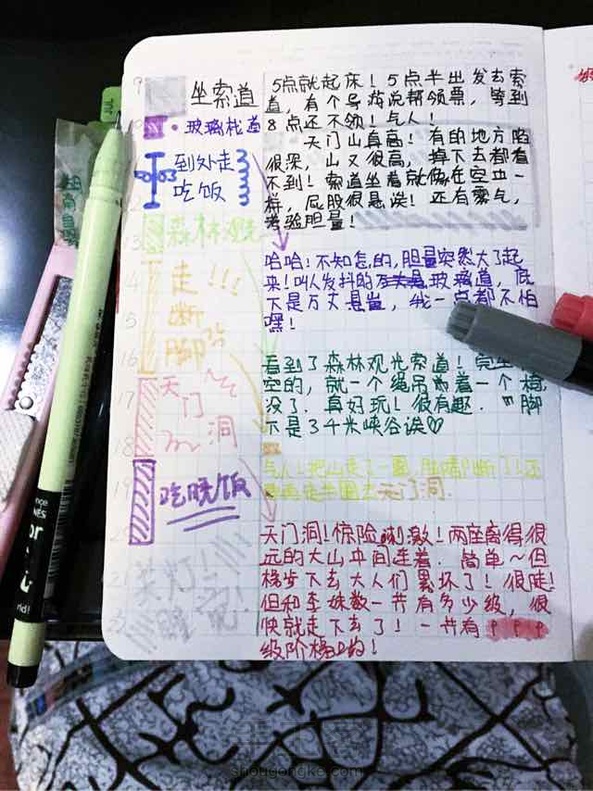 9
坐索道
玻璃栈道
到处走
吃饭
13
森林观光
14
走!!!
断
脚
16
17
天
门
洞
18
19
吃晚饭
21
关灯!
睡觉!
5点就起床!5点半出发去索
道,有个导游说帮领票,等到
8点还不领!气人!
天门山真高!有的地方陷
很深,山又很高,掉下去都看
不到!索道坐着就像在空中一
样,屁股很悬诶!还有雾气,
考验胆量!
哈哈!不知怎的,胆量突然大了起
来!叫人发抖的玻璃道,底
下是万丈悬崖,我一点都不怕
嘿!
看到了森林观光索道!完全
空的,就一个绳吊着一个椅
没了.真好玩!很有趣.脚
下是34米峡谷诶♡
气人!把山走了一圈,脚都断了!还
要再走半圈去天门洞.
天门洞!惊险刺激!两座高得很
元的大山中间连着.简单~但
梯步下去大人们累坏了!很陡!
但和李姝数一节有多少级,很
快就走下去了!一共有999
级阶梯的!
手工客
shougongke.com